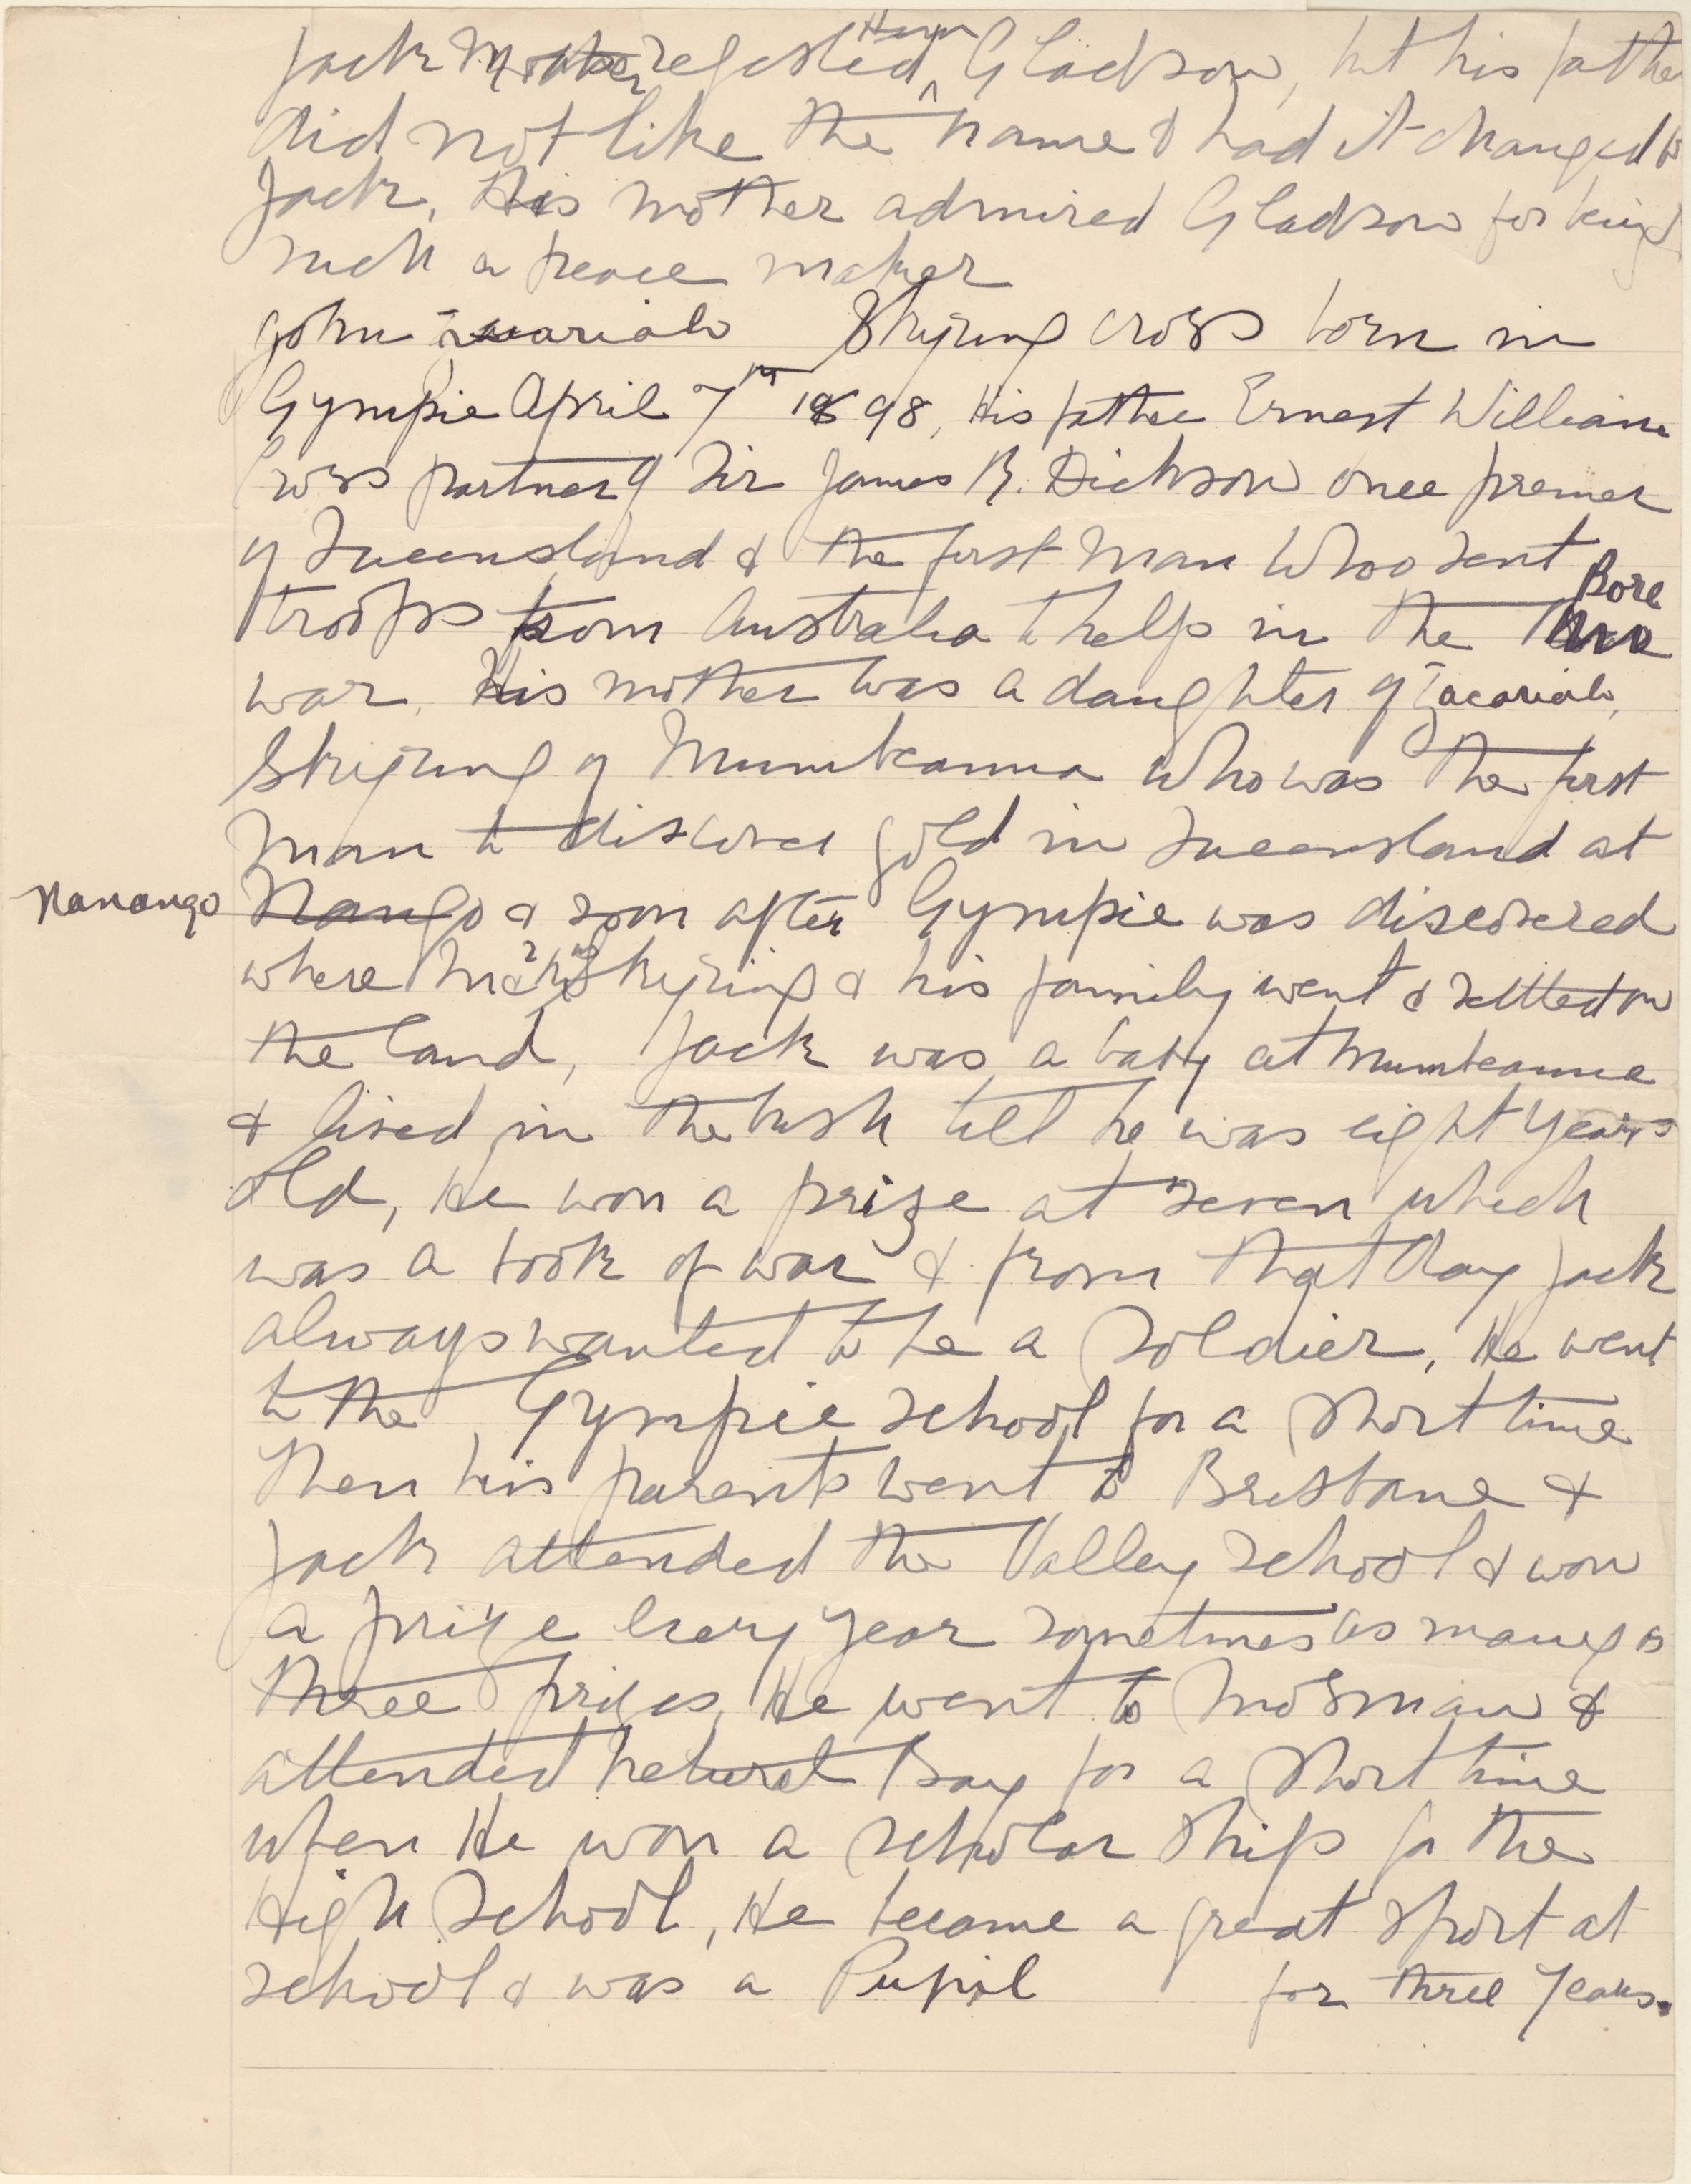 Jack Mother regested ^Him Gladson, but his father
did not like the name & had it changed to
Jack, His mother admired Gladson for being
such a peace maker
John Zacariah Skyring Cross born in
Gympie April 7th 1898, His father Ernest William
was partner of Sir James R. Dickson once premer
of Queensland & the first man Who sent
Bore
troops from Australia to help in the
war, His mother was a daughter of Zacariah,
Skyring of Mumbeanna who was the first
man to discover gold in Queensland at
Nanango Nango & soon after Gympie was discovered
where Mr & Mrs Skyring & his family went & settled on
the land, Jack was a baby at Mumbeanna
& lived in the bush till he was eight years
old, He won a prize at seven which
was a book of war & from that day Jack
always wanted to be a Soldier, He went
to the Gympie school for a short time
then his parents went to Brisbane &
Jack attended the Valley School & won
a prize every year sometimes as many as
three prizes, He went to Mosman &
attended Neturel Bay for a short time
when He won a scholar ship for the
High School, He became a great sport at
school & was a Pupil for three years.